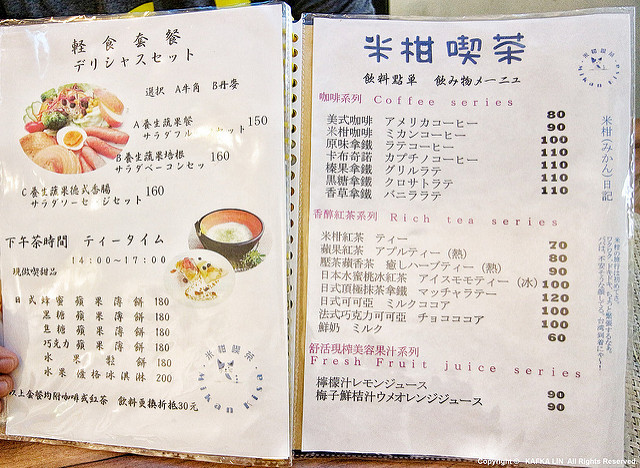 軽食套餐
デリシャスセット
選択 A牛角 B丹麥
A養生蔬果餐 150
B養生蔬果培根 160
サラダベーコンセッ
C養生蔬果德式香腸 160
サラダソーセージセット
下午茶時間 ティータイム
14:00~17:00
現做喫甜品
日式蜂蜜蘋果薄餅 180
黑糖蘋果薄餅 180
焦糖蘋果薄餅 180
巧克力蘋果薄餅 180
水果鬆餅 180
水果優格冰淇淋 200
以上套餐均附咖啡或紅茶 飲料更換折抵30元
米柑喫茶
飲料點單 飲み物メーニュ
米柑(みかん)日記
咖啡系列 Coffee series
美式咖啡 アメリカコーヒー 80
米柑咖啡 ミカンコーヒー 90
原味拿鐵 ラテコーヒー 100
卡布奇諾 カプチノコーヒー 110
榛果拿鐵 グリルラテ 110
黑糖拿鐵 クロサトラテ 110
香草拿鐵 バニララテ 110
香醇紅茶系列 Rich tea series
米柑紅茶 ティー 70
蘋果紅茶 アプルティー(熱) 80
壓茶蘋香茶 癒しハーブティー(熱) 90
日本水蜜桃冰紅茶 アイスモモティー(冰) 100
日式頂極抹茶拿鐵 マッチャラテー 120
日式可可亞 ミルクココア 100
法式巧克力可可亞 チョコココア 100
鮮奶 ミルク 60
舒活現榨美容果汁系列
Fresh Fruit juice series
檸檬汁レモンジュース 90
梅子鮮桔汁ウメオレンジジュース 90
Copyright © KAFKA LIN All Rights Reserved.